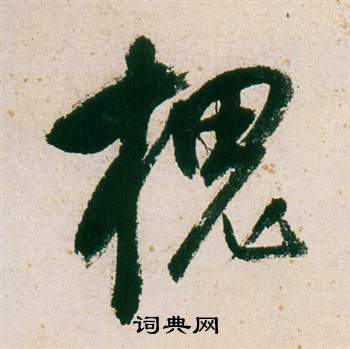 槐
词典网